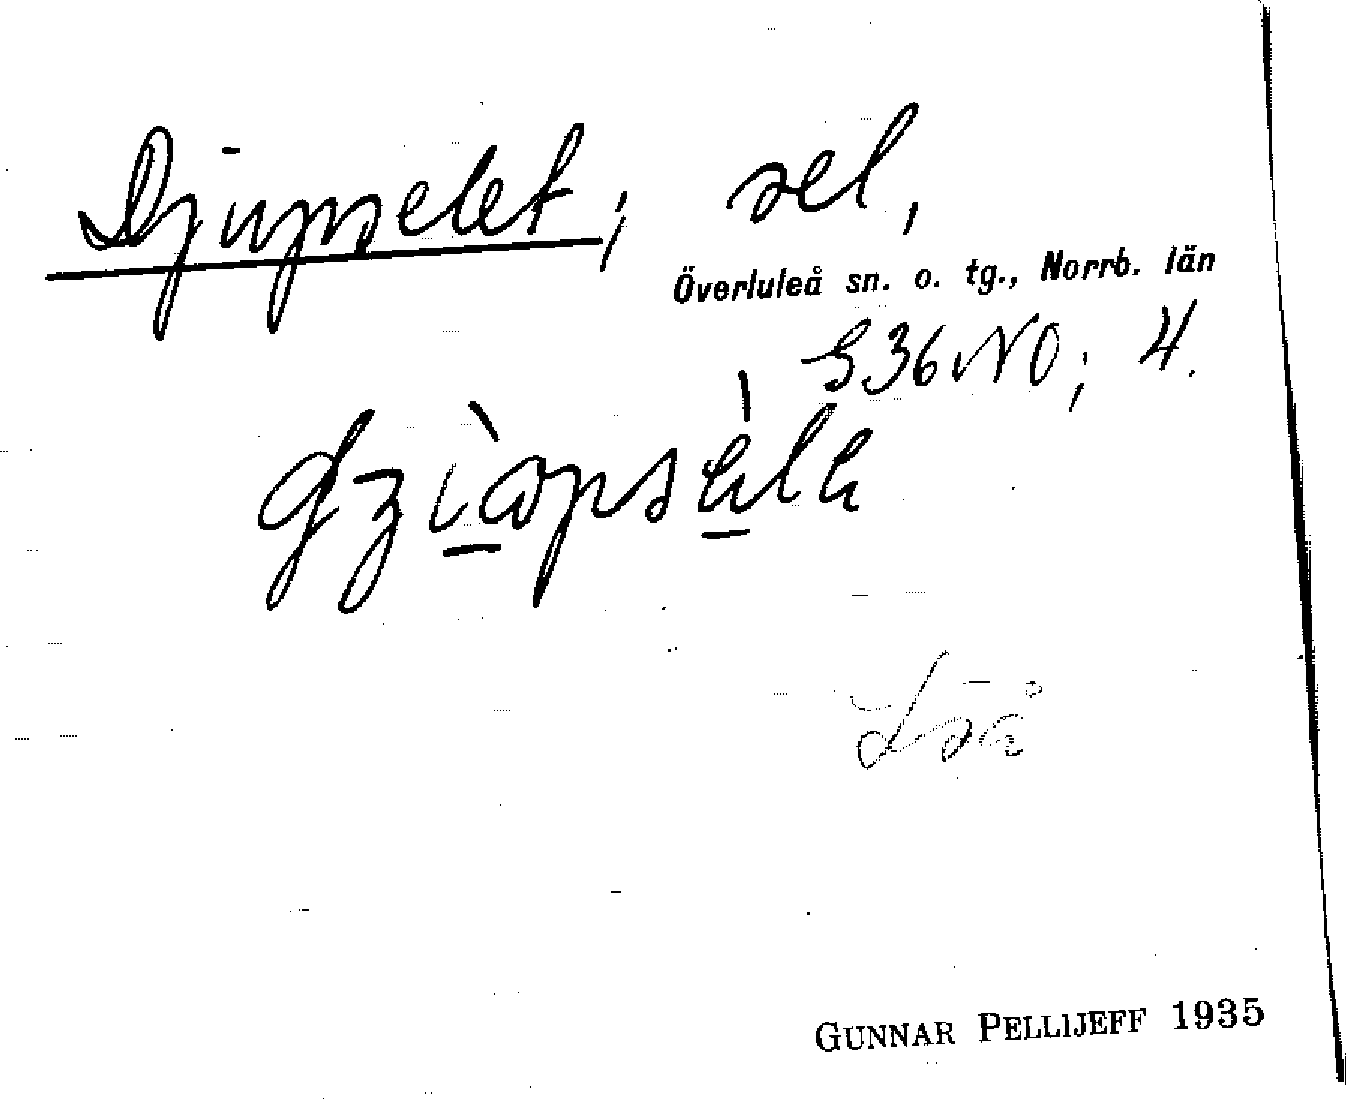 Djupselet, sel,
Överluleå sn. o. tg., Norrb. län
S 36 NO; 4.
Lså
GUNNAR PELLIJEFF 1935